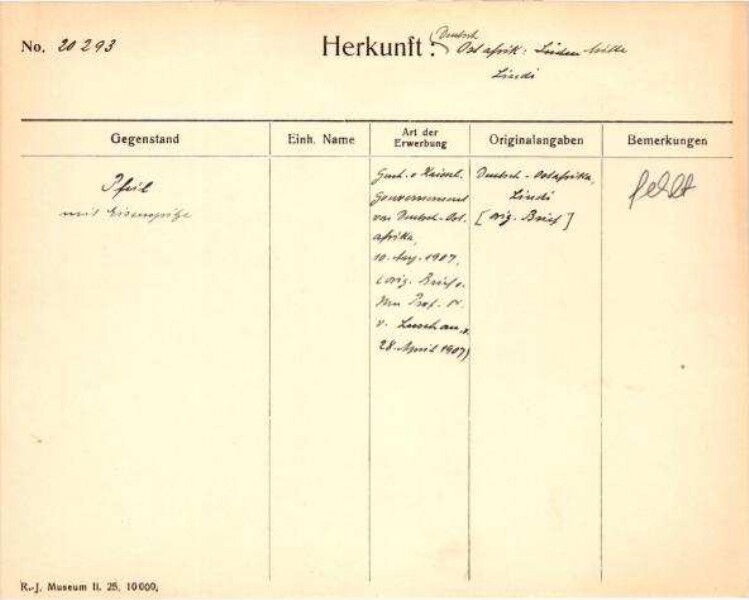 No. 20293
Herkunft: (Deutsch Ostafrik:
Lindi
Gegenstand
Einh. Name
Art der
Erwerbung
Originalangaben
Bemerkungen
Pfeil
mit Eisenspitze
Gesch. v. Kaiserl.
Gouvernement
von Deutsch-Ost-
afrika,
10. Aug. 1907,
(orig. Brief v.
Herrn Prof. Dr.
v. Luschan v.
28. April 1907)
Deutsch-Ostafrika,
Lindi
[orig. Brief]
fehlt
R.-J. Museum II. 25, 10000,